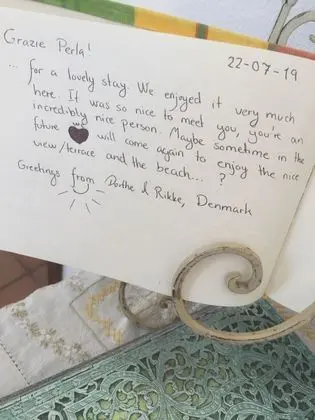 Grazie Perla!
22-07-19
... for a lovely stay. We enjoyed it very much
here. It was so nice to meet you, you're an
incredibly nice person. Maybe sometime in the
future we will come again to enjoy the nice
view/terrace and the beach... ?
Greetings from Dorthe & Rikke, Denmark